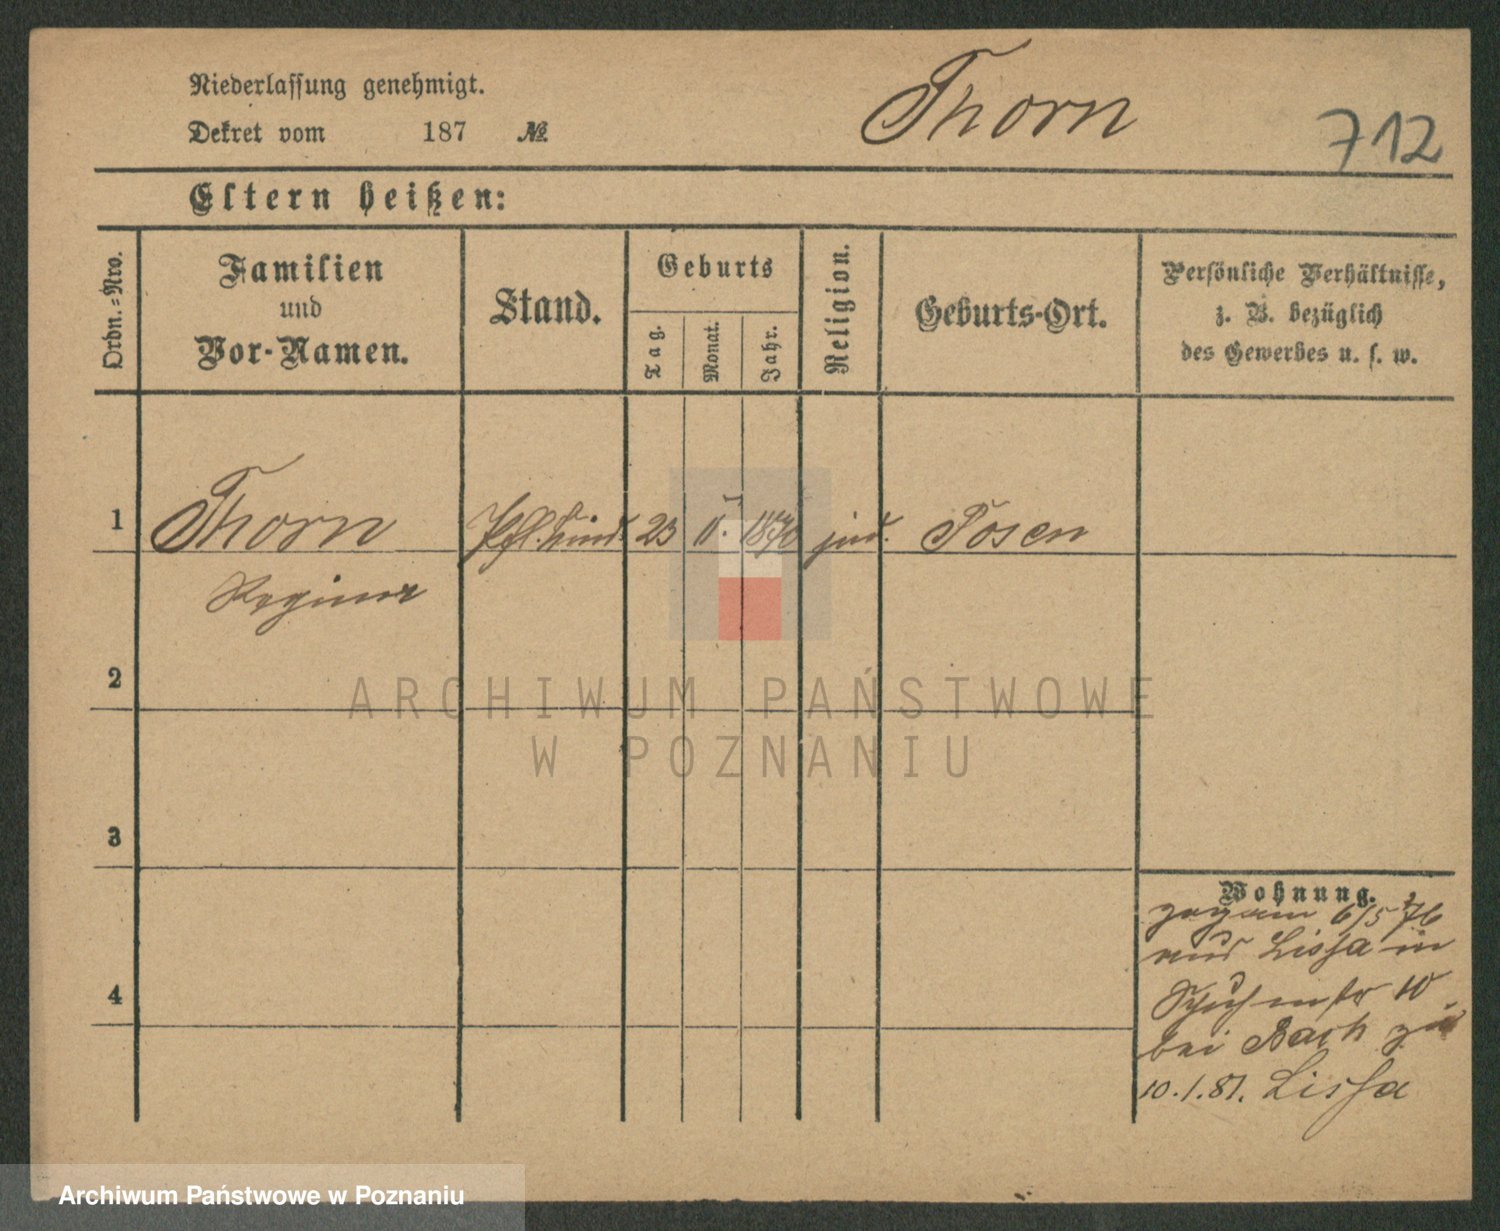 Niederlassung genehmigt.
Thorn
712
Dekret vom 187 №
Eltern heißen:
Ordn.-Nro.
Familien
und
Vor-Namen.
Stand.
Geburts
Tag.
Monat.
Jahr.
Religion.
Geburts-Ort.
Persönliche Verhältnisse,
z. B. bezüglich
des Gewerbes u. s. w.
1 Thorn 23 1870 jüd. Posen
Regina
2
ARCHIWUM PAŃSTWOWE
W POZNANIU
3
Wohnung.
6/5 76
aus Lissa in
10
4
bei Bach
10.1.81. Lissa
Archiwum Państwowe w Poznaniu